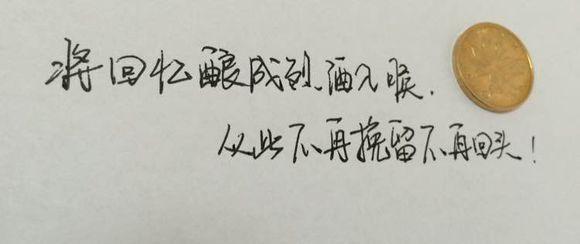 将回忆酿成烈酒入喉.
从此不再挽留不再回头！